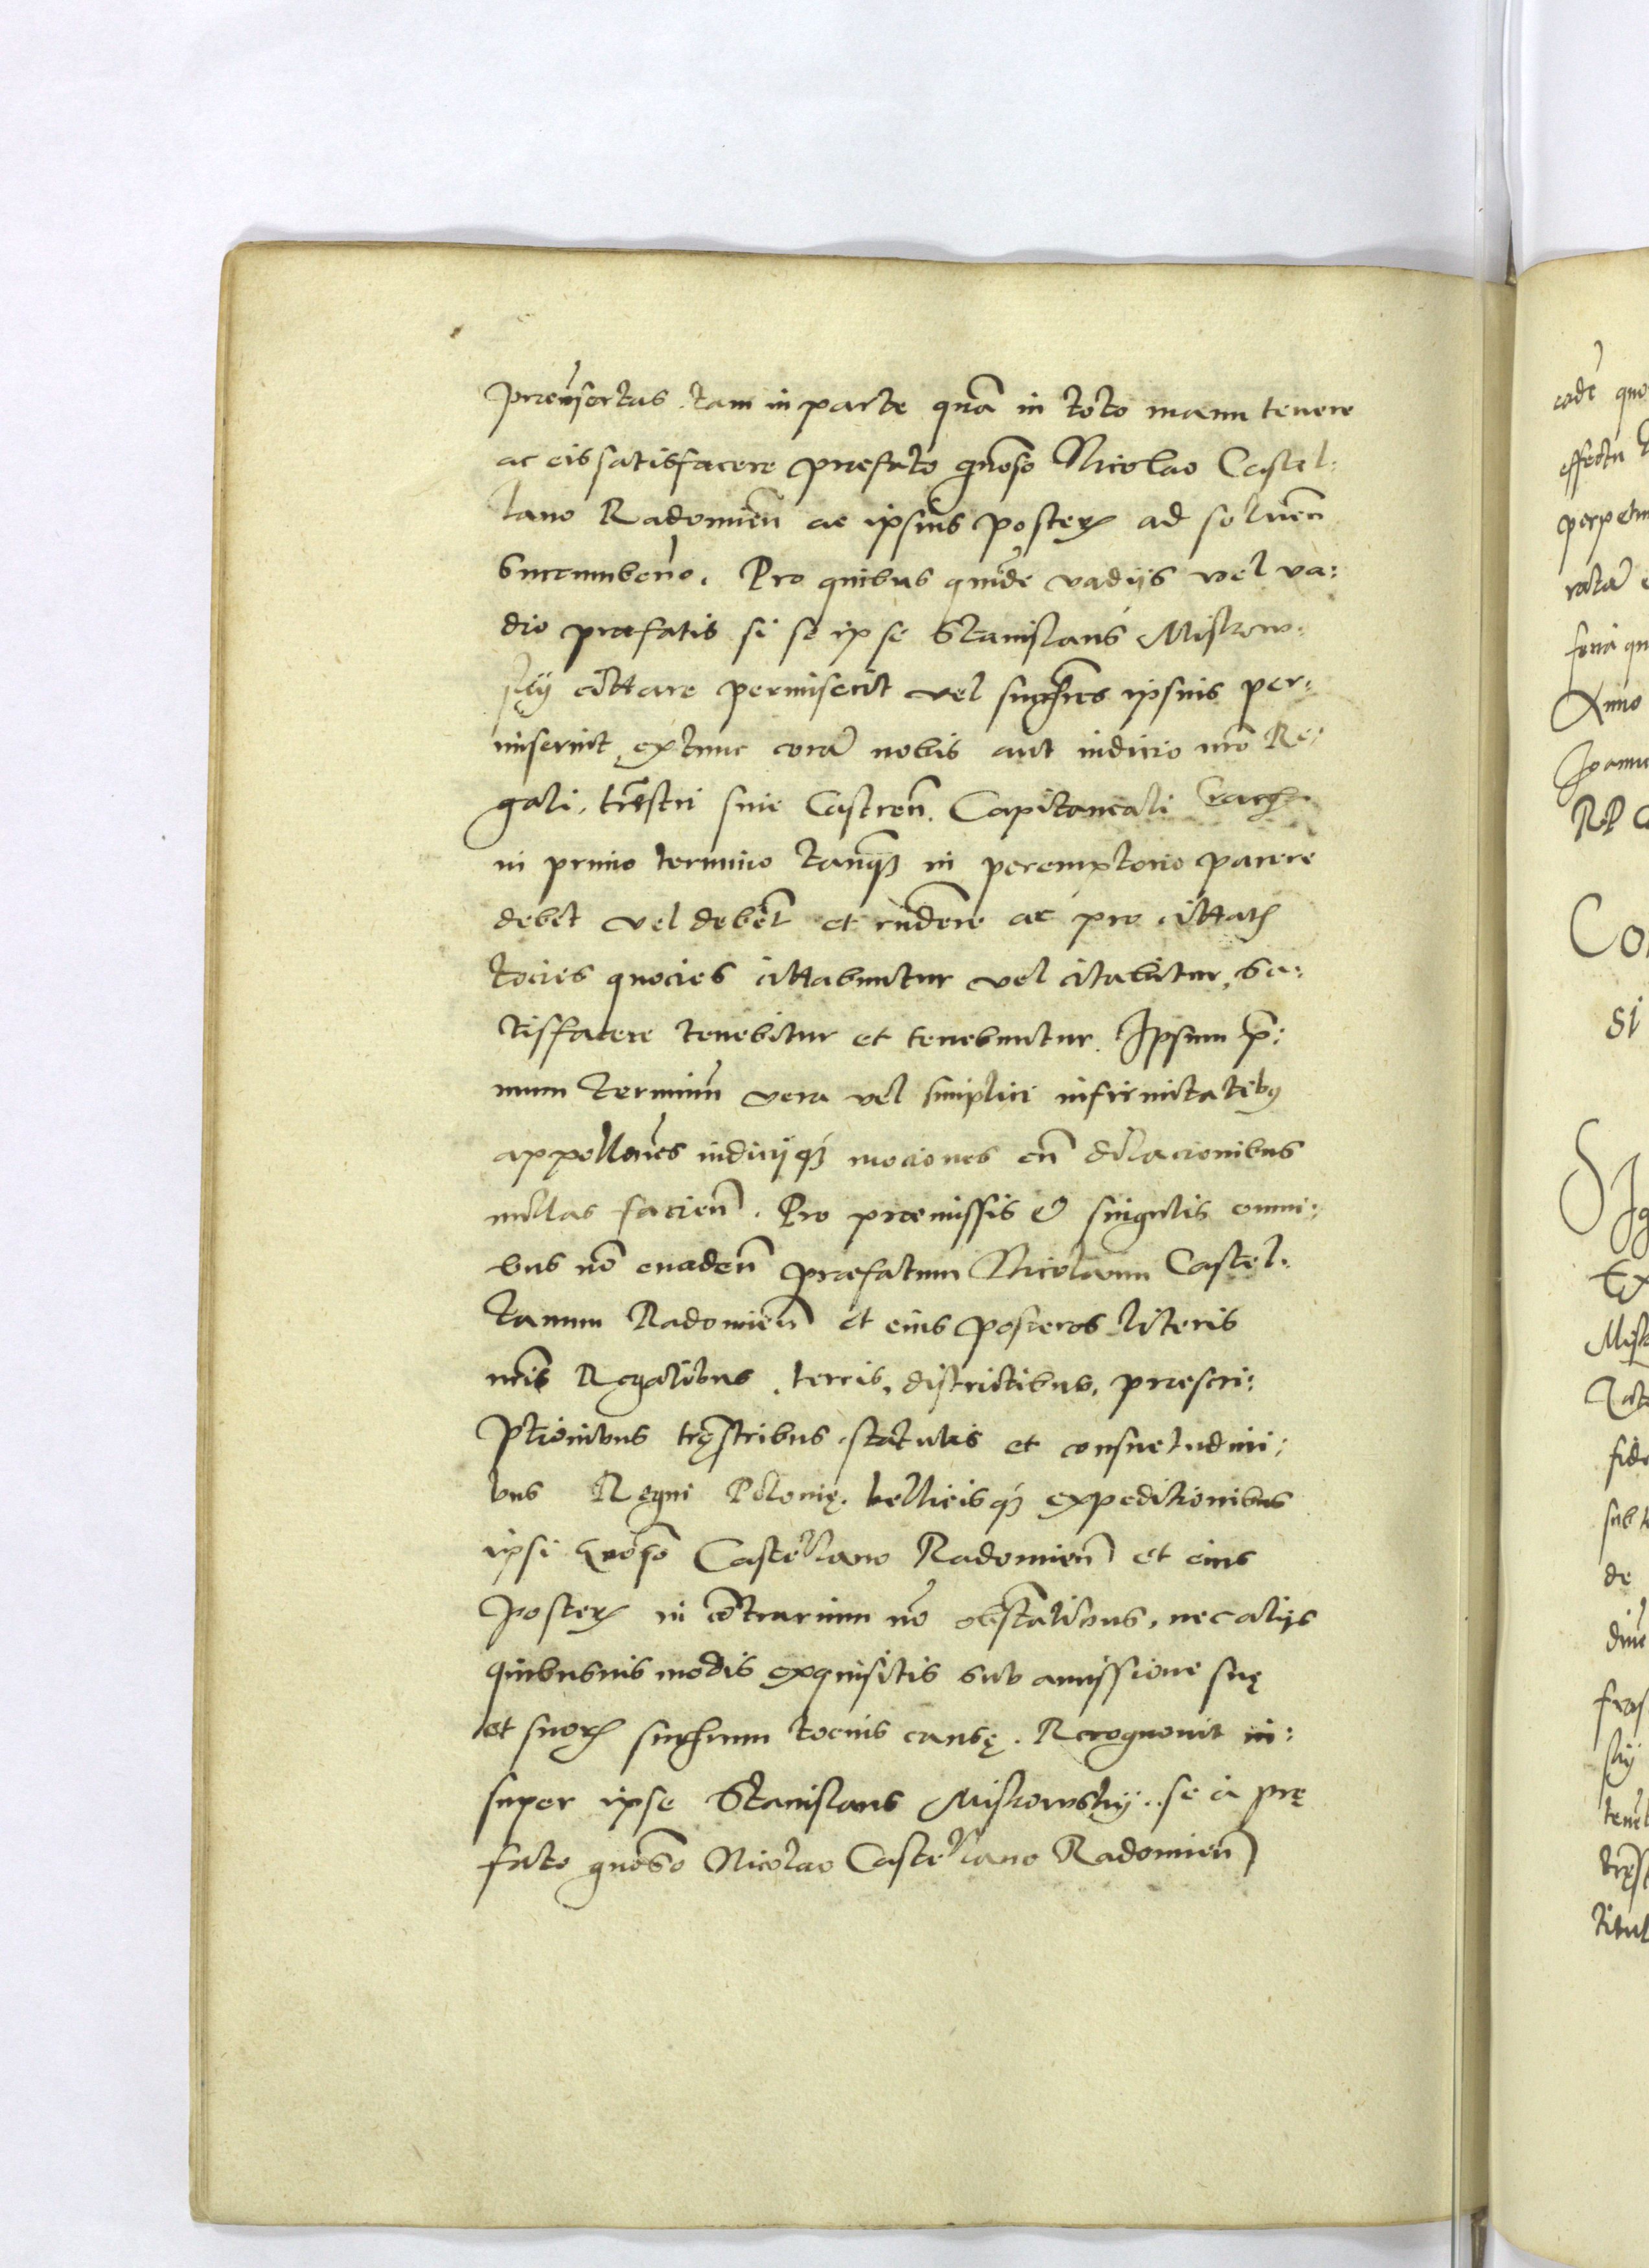 praeinsertas tam in parte quā in toto manu tenere
ac eis satisfacere praefato gnōso Nicolao Castel:
lano Radomieñ ac ipsius posterꝝ ad solueñ
succumbeñō. Pro quibus quidē vadijs vel va:
dio praefatis si se ipse Stanislaus Miskow:
skij cittare permiserit vel succħres ipsius per:
miserint, extunc corā nobis aut iudicio nrō Re:
gali, trr̄estri siue Castreñ. Capitaneali
in primo termino tanqȝ in peremptorio parere
debet vel debēt et rn̄dere ac pro cittatꝭ
tocies quocies cittabuntur vel citabitur, sa:
tisfacere tenebitur et tenebuntur. Ipsum p̄:
mum terminū vera vel simplici infirmitatibꝰ
appelloñes iudicijqȝ mociones cū dilacionibus
nullas facieñ. Pro praemissis & singulis omni:
bus nō euadeñ praefatum Nicolaum Castel:
lanum Radomieñ et eius posteros literis
nrīs Regalibus, terris, districtibus, praescri:
ptionibus trr̄ęstribus, statutis et consuetudini:
bus Regni Polonię, bellicisqȝ expeditionibus
ipsi Gnōso Castellano Radomieñ et eius
posterꝝ in cōtrarium nō obstātibus, nec alijs
quibusuis modis exquisitis sub amissione suę
et suorꝝ succħrum tocius causę. Recognouit in:
super ipse Stanislaus Miskowskij. se à prę
fato gnōso Nicolao Castellano Radomieñ
effectu
Anno
sub
de